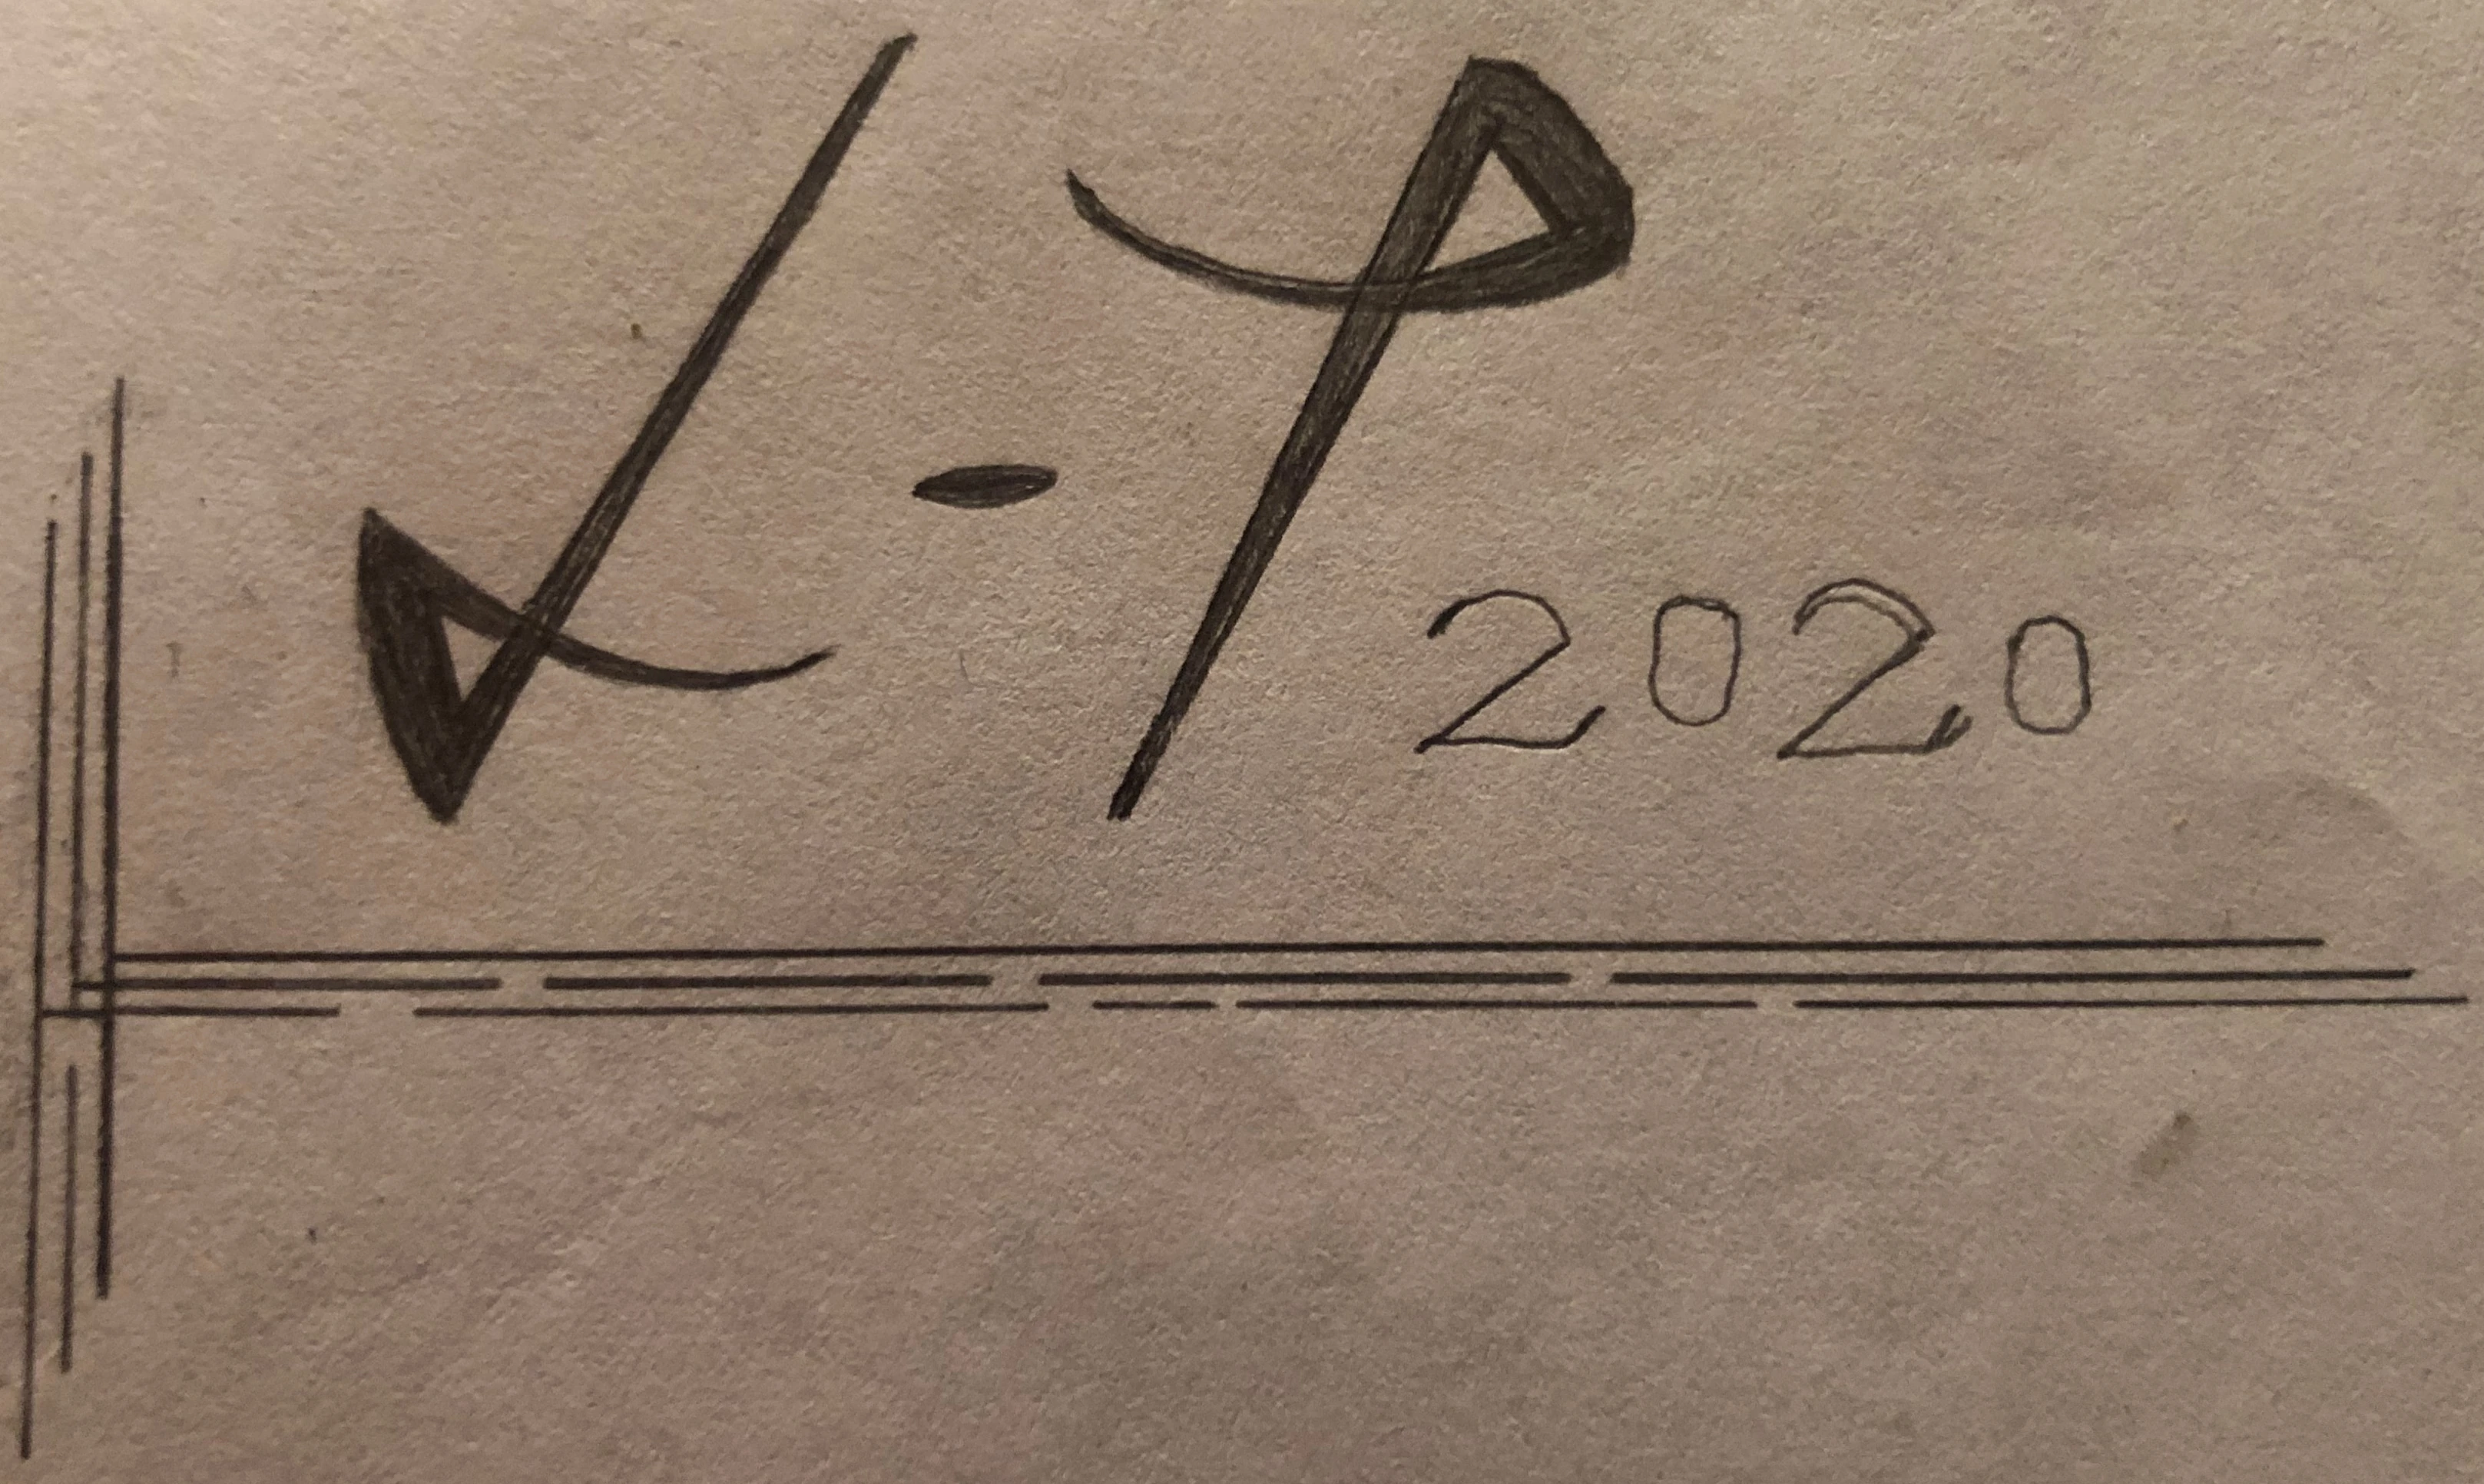 L-P 2020